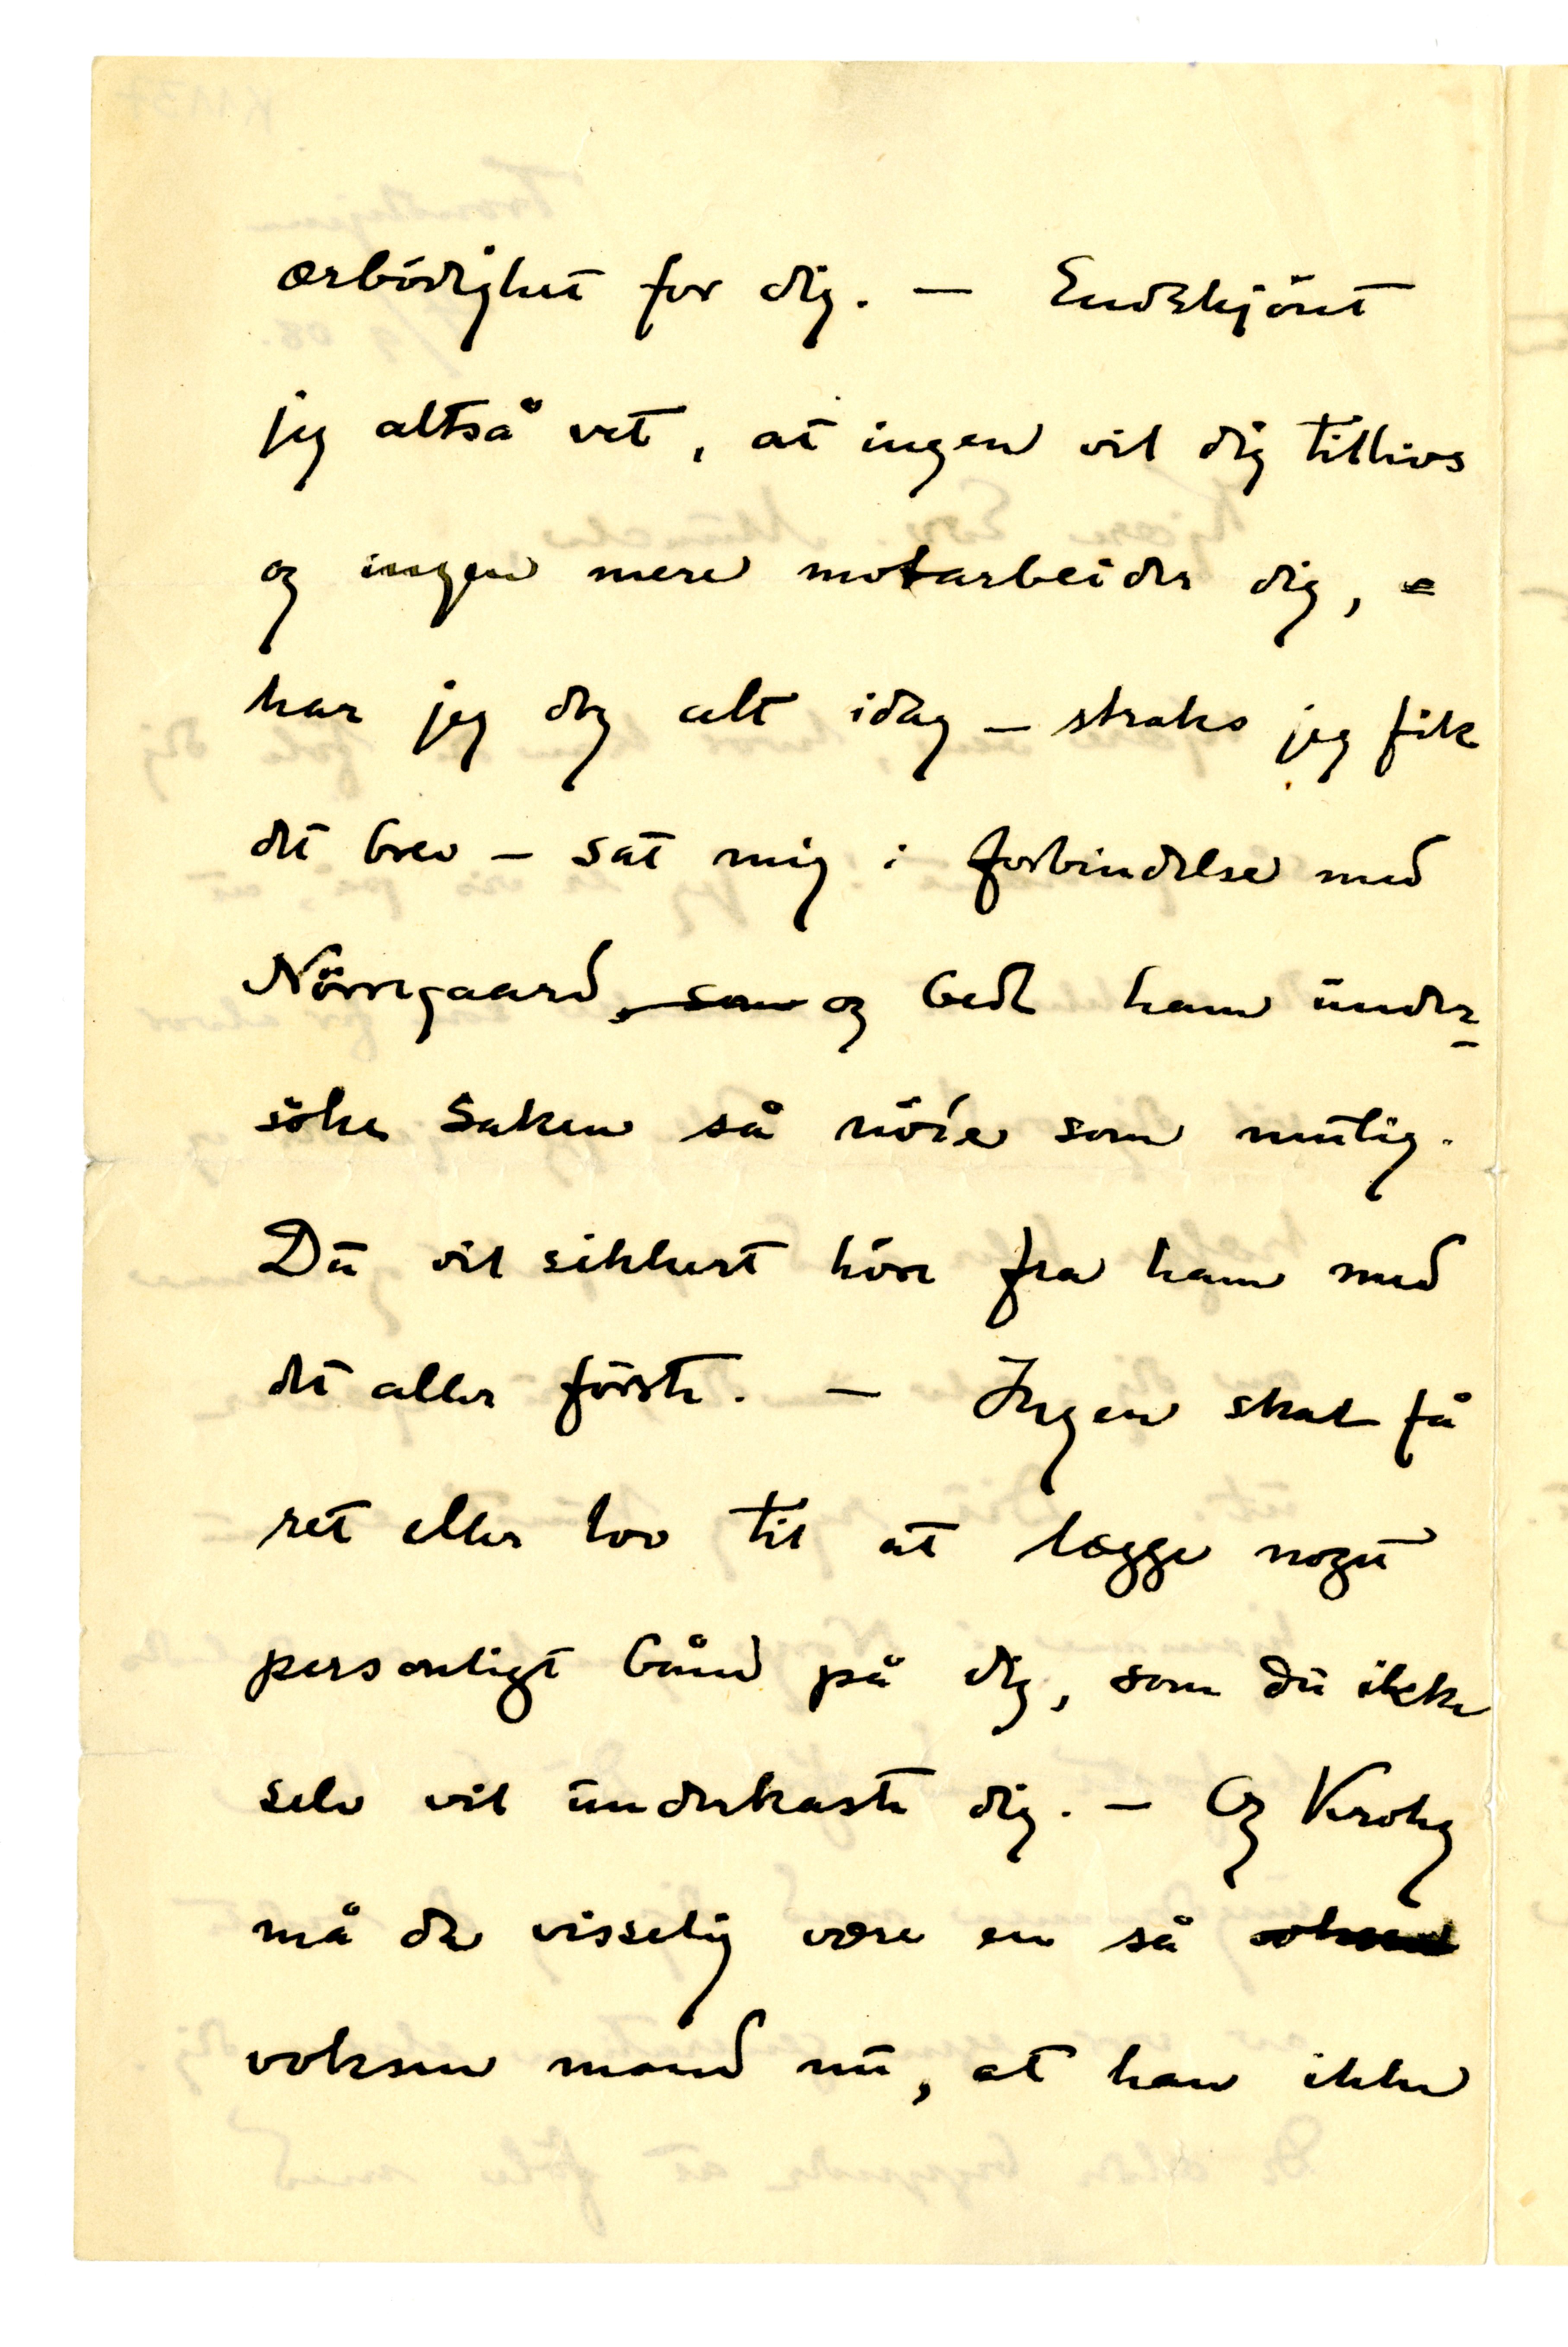 ærbödighet for dig. — Endskjönt
jeg altså vet, at ingen vil dig tillivs
og ingen mere motarbeider dig,
har jeg dog alt idag – straks jeg fik
dit brev – sat mig i forbindelse med
Nörregaard, som og bedt ham under-
söke saken så nöie som mulig.
Du vil sikkert höre fra ham med
det aller förste. — Ingen skal få
ret eller lov til at lægge noget
personligt bånd på dig, som du ikke
selv vil underkaste dig. — Og Krohg
må da visselig være en så
voksen mand nu, at han ikke